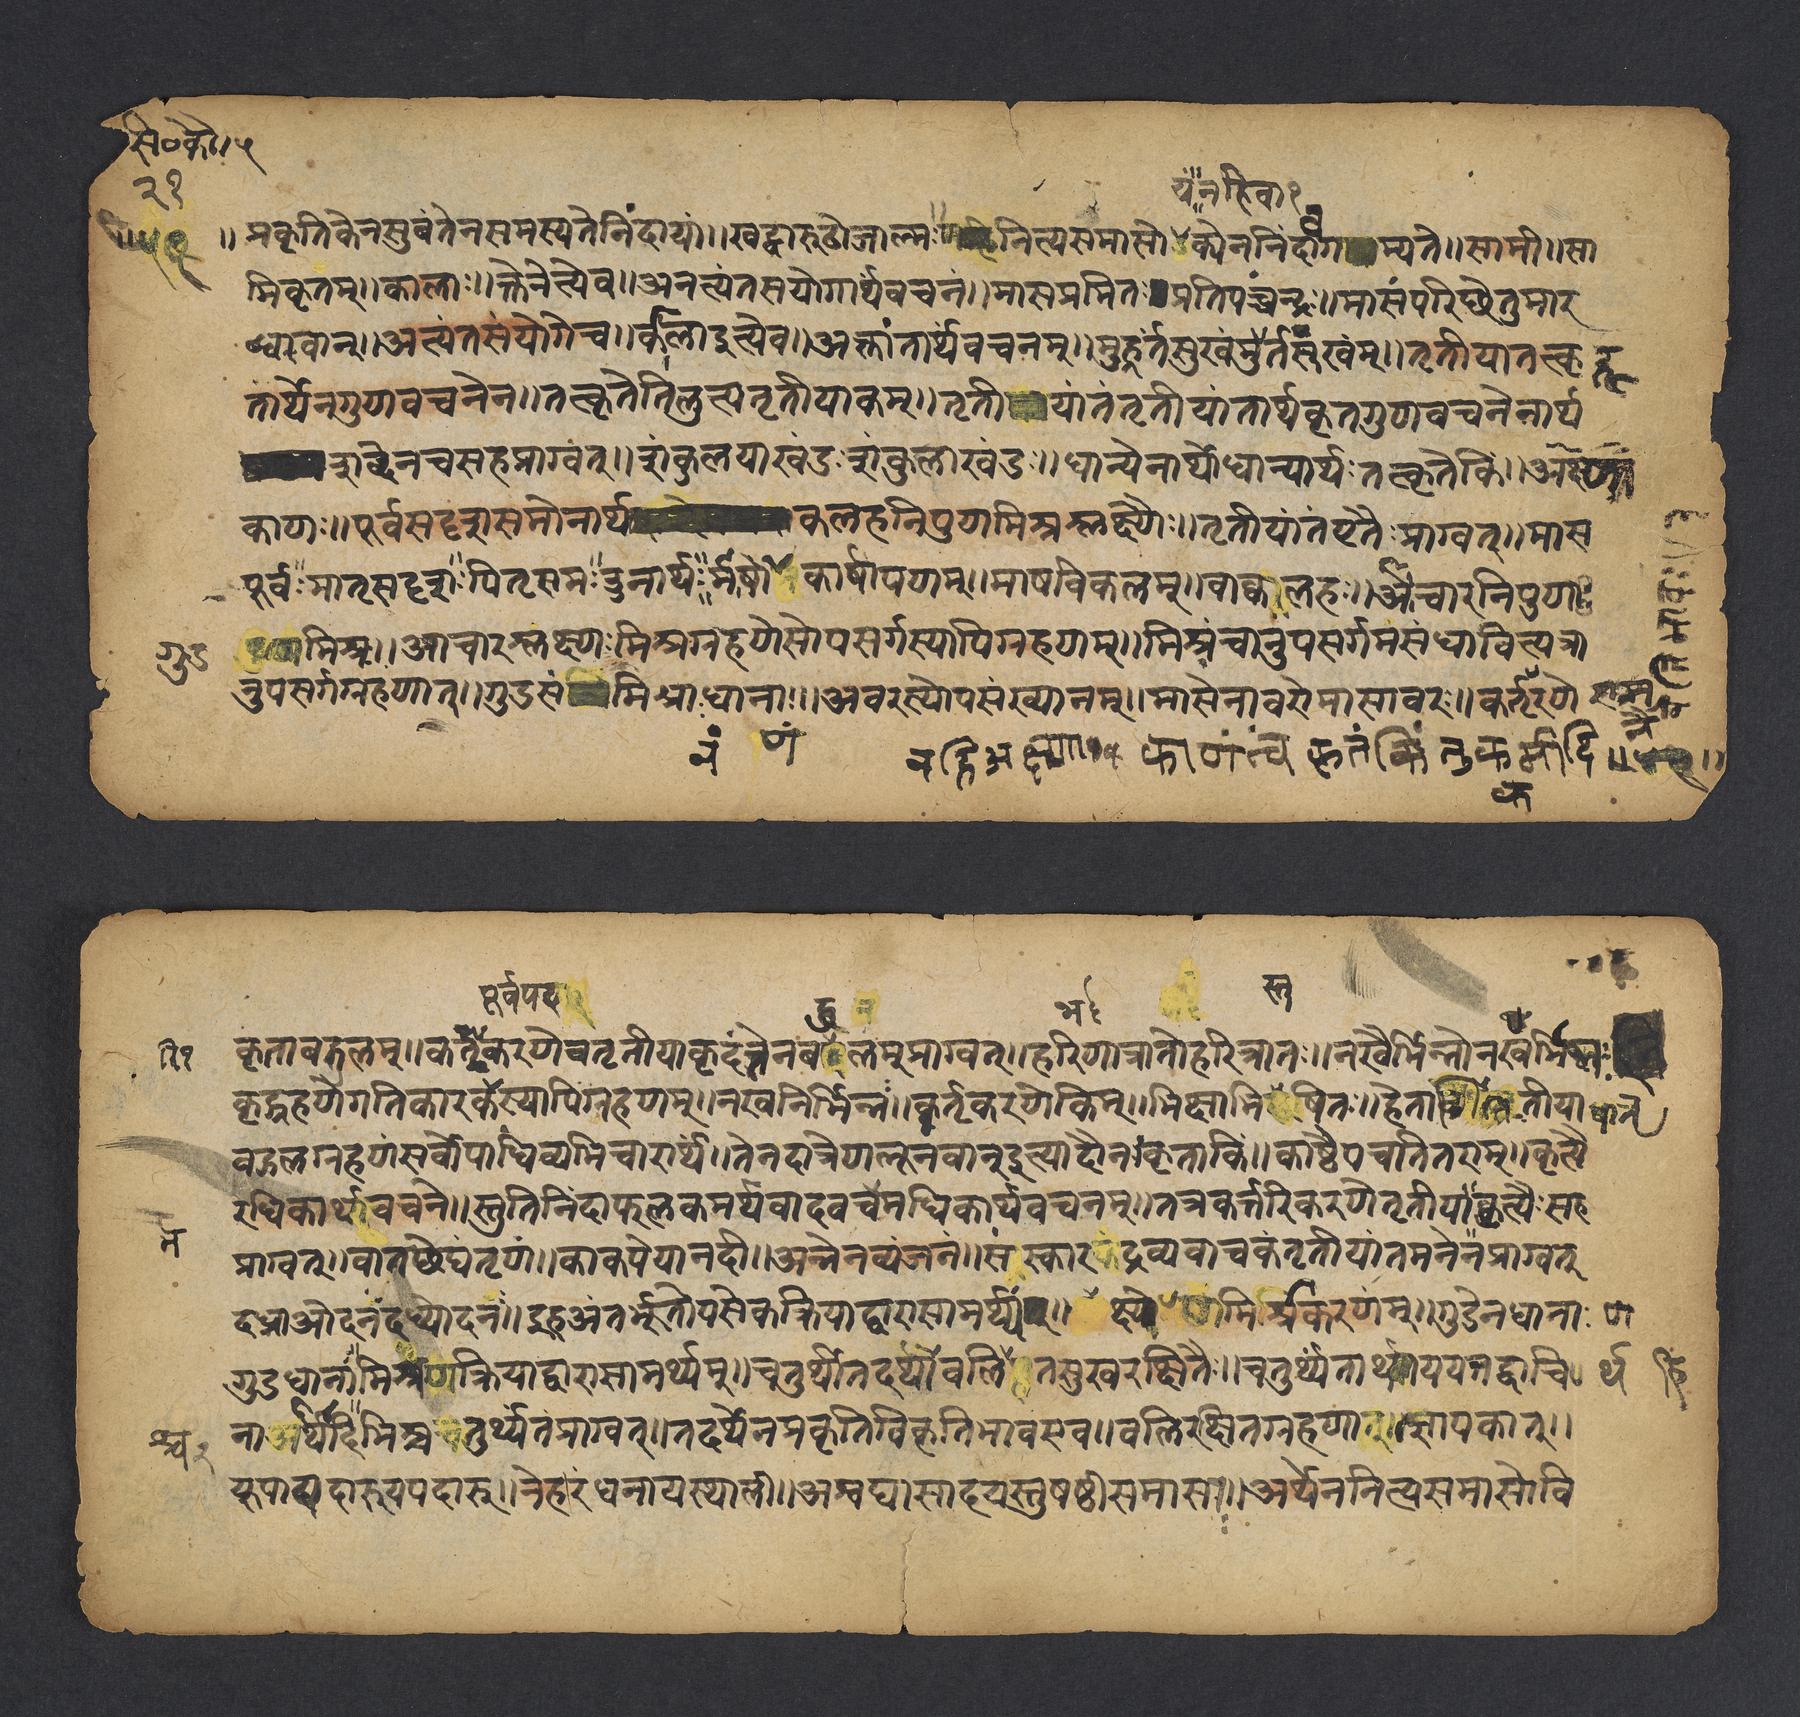 सि०कौ॥५
२१
यं"नहिवा१
॥ प्रकृतिकेनसुबंतेनसमस्यतेनिंदायां॥खट्वारूढोजाल्मः"नित्यसमासोक्येननिंदागम्यते॥सामी॥सा
मिकृतम्॥कालाः॥क्तेनेत्येव॥अनत्यंतसयोगार्थवचनं॥मासप्रमितःप्रतिपच्चन्द्रः॥मासंपरिछेत्तुमार
ब्धवान्॥अत्यंतसंयोगेच॥कालाइत्येव॥अक्तांतार्थंवचनम्॥मुहूर्तसुखंमुर्तसुखंम्॥तृतीयातत्कृ
तार्थेनगुणवचनेन॥तत्कृतेतिलुत्पतृतीयाकम्॥तृतीयांतंतृतीयांतार्थकृतगुणवचनेनार्थ
शब्देनचसहप्राग्वंत्॥शंकुलयाखंडःशंकुलाखंडः॥धान्येनार्थोधान्यार्थःतत्कृतेकिं॥अक्ष्णा
काणः॥पूर्वसदृशसमोनार्थकलहनिपुणमिश्रश्लक्ष्णैः॥तृतीयांतंएतैःप्राग्वत्॥मास
पूर्वः"मातृसदृशः"पितृसमः"उनार्थः"र्माषोनंकार्षापणम्॥माषविकलम्॥वाक्कलहः॥आचारनिपुणः
गुड मिश्रः॥आचारश्लक्ष्णःमिश्रग्रहणेसोपसर्गस्यापिग्रहणम्॥मिश्रंचानुपसर्गमसंधावित्यत्रा
नुपसर्गग्रहणात्॥गुडसंमिश्राधानाः॥अवरस्योपसंख्यानम्॥मासेनावरोमासावरः॥कर्तृरणे
नं णं नहिअक्ष्णा काणंत्वं कृतं किंतु कर्मादि॥
क
पूर्वपद
हु न
भ
स्त
कृताबहुलम्॥कर्तृकरणेचतृतीयाकृदंतेनबहुलंम्प्राग्वत्॥हरिणात्रातोहरित्रातः॥नखैर्भिन्नोनखर्भिन्नः
कृद्ग्रहणेगतिकारकस्यापिग्रहणम्॥नखनिर्भिन्नः॥कर्तृकरणेकिम्॥भिक्षाभिरुषितः॥हेतातृतीया
बहुलग्रहणंसर्वोपाधिव्यभिचारार्थं॥तेनदात्रेणलूनवान्इत्यादौन"कृताकिं॥काष्ठैपचतितराम्॥कृत्यै
रधिकार्थवचने॥स्तुतिनिंदाफलकमर्थवादवचमधिकार्थवचनम्॥तत्रकर्त्तरिकरणेतृतीयाकृत्यैःसह
न
प्राग्वत्॥वातछेद्यंतृणं॥काकपेयानदी॥अन्नेनव्यंजनं॥संस्कारकंद्रव्यवाचकंतृतीयांतमनेन"प्राग्वत्
दध्नाओदनंदध्योदनं॥इहअंतर्भूतोपसेकक्रियाद्वारासामर्थ्यं॥ भक्ष्येणमिश्रीकरणंम्॥गुडेनधानाः
गुडधाना"मिश्रणक्रियाद्वारासामर्थ्यम्॥चतुर्थीतदर्थार्थबलिहितसुखरक्षितैः॥चतुर्थ्यंतार्थाययत्तद्वाचि
ना"अर्थादिभिश्चचतुर्थ्यंतंप्राग्वत्॥तदर्थेनप्रकृतिविकृतिभावएव॥बलिरक्षितग्रहणात्॥ज्ञापकात्॥
यूपायदारुयूपदारु॥नेहरंधनायस्थाली॥अश्वघासादयस्तुषष्ठीसमासः॥अर्थेननित्यसमासोवि